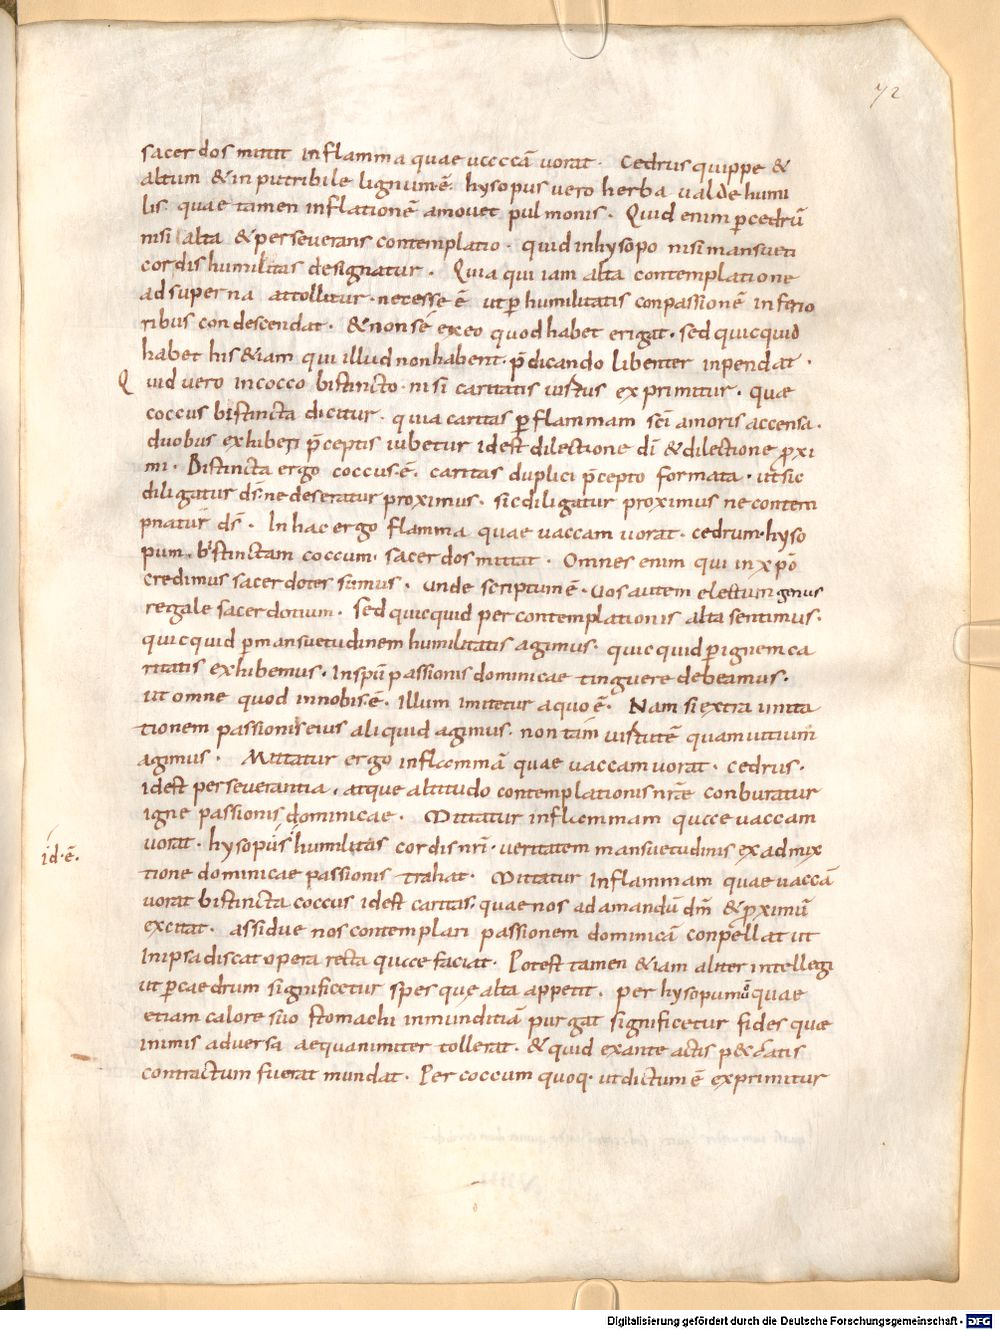 72
sacerdos mittit inflamma quae uaccā uorat. Cedrus quippe &
altum & inputribile lignum ē. hysopus vero herba ualde humi
lis quae tamen inflationē amovet pulmonis. Quid enim p̄cedrū
nisi alta & perseverans contemplatio. quid in hysopo nisi mansueti
cordis humilitas designatur. Quia qui iam alta contemplatione
ad superna attollitur. necesse ē ut p̄ humilitatis conpassionē inferio
ribus condescendat. & non sē ex eo quod habet erigat. sed quicquid
habet his &iam qui illud non habent. p̄dicando libenter inpendat.
Quid vero in cocco bistincto. nisi caritatis uirtus exprimitur. quae
coccus bistincta dicitur. quia caritas p̄ flammam sc̄i amoris accensa.
duobus exhiberi p̄ceptis iubetur idest dilectione dī & dilectione proxi
mi. Bistincta ergo coccus ē. caritas duplici p̄cepto formata. ut sic
diligatur ds̄. ne deseratur proximus. sic diligatur proximus ne contem
pnatur ds̄. In hac ergo flamma quae vaccam uorat. cedrum. hyso
pum. bistinctam coccum. sacerdos mittat. Omnes enim qui in xp̄o
credimus sacerdotes sumus. unde scriptum ē. Uos autem electum genus
regale sacerdotium. sed quicquid per contemplationis alta sentimus.
quicquid p̄ mansuetudinem humilitatis agimus. quicquid p̄ ignem ca
ritatis exhibemus. In spū passionis dominicae tinguere debeamus.
ut omne quod in nobis ē. illum imitetur a quo ē. Nam si extra imita
tionem passionis eius aliquid agimus. non tam uirtutē quam uitium
agimus. Mittatur ergo inflammā quae vaccam uorat. cedrus.
idest perseverantia. atque altitudo contemplationis nr̄ae conburatur
igne passionis dominicae. Mittatur inflammam quae vaccam
uorat. hysopus humilitas cordis nr̄i. veritatem mansuetudinis ex admix
id.ē.
tione dominicae passionis trahat. Mittatur inflammam quae vaccā
uorat bistincta coccus idest caritas. quae nos ad amandū dm̄ & proximū
excitat. assidue nos contemplari passionem dominicā conpellat ut
In ipsa discat opera recta quae faciat. Potest tamen &iam aliter intellegi
ut p̄ caedrum significetur spes que alta appetit. per hysopum quae
etiam calore suo stomachi inmunditiā purgat significetur fides quae
inimis adversa aequanimiter tollerat. & quid ex ante actis p&catis
contractum fuerat mundat. Per coccum quoq. ut dictum ē exprimitur
Digitalisierung gefördert durch die Deutsche Forschungsgemeinschaft - DFG